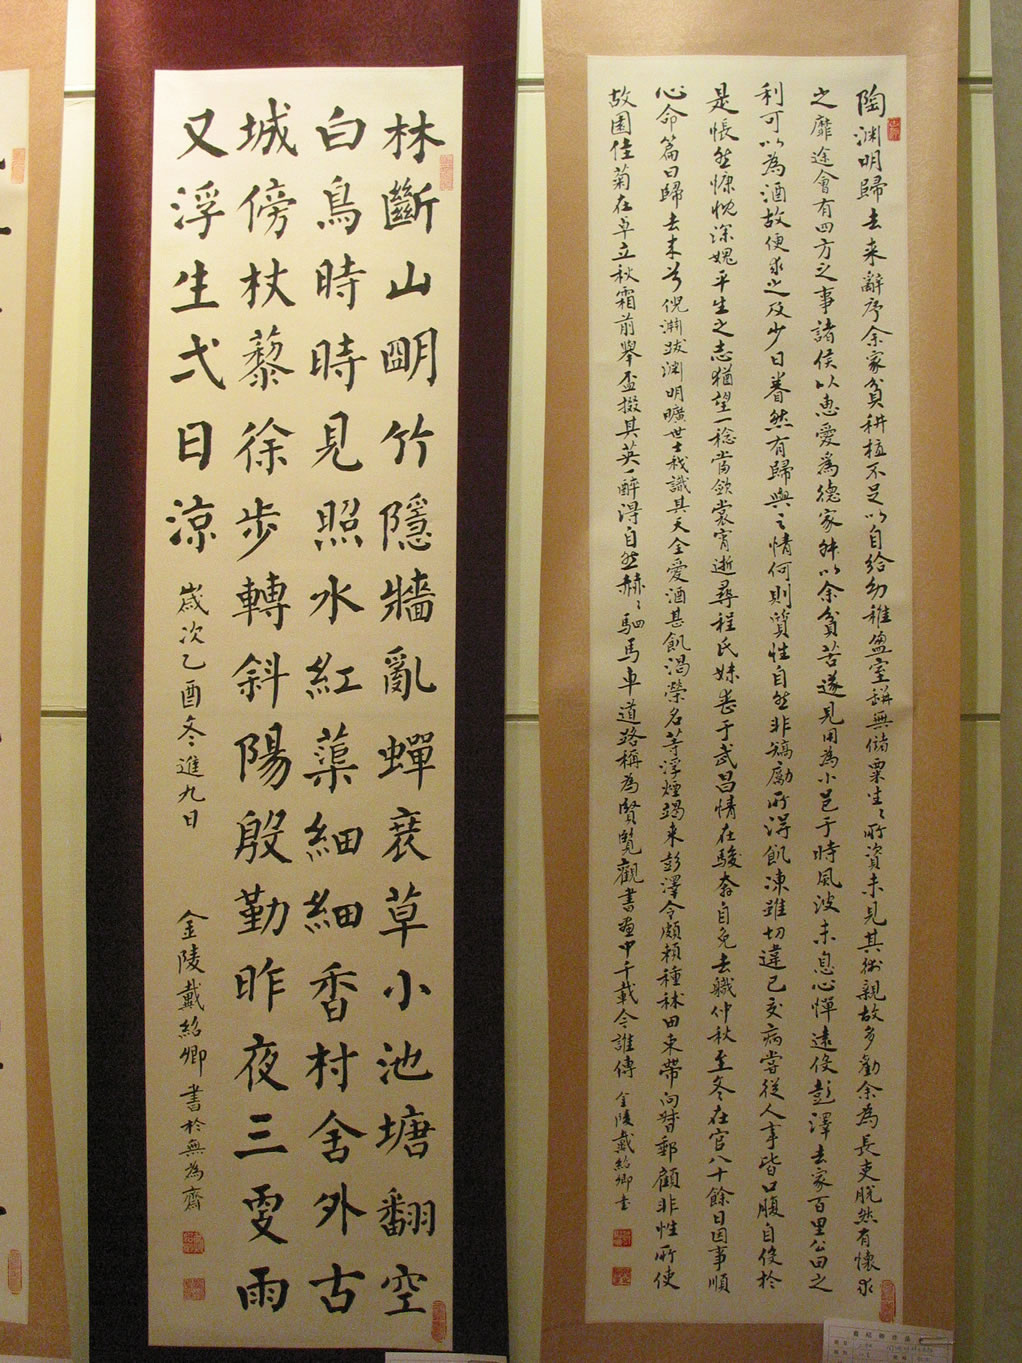 陶渊明歸去来辭序余家貧耕植不足以自給幼稚盈室缾無儲粟生〻所資未見其術親故多勸余為長吏脫然有懷求
之靡途會有四方之事諸侯以惠愛為德家叔以余貧苦遂見用為小邑于時風波未息心憚遠役彭澤去家百里公田之
利可以為酒故便求之及少日眷然有歸與之情何則質性自然非矯勵所得飢凍雖切違己交病嘗從人事皆口腹自役於
是悵然慷慨深愧平生之志猶望一稔當斂裳宵逝尋程氏妹喪于武昌情在駿奔自免去職仲秋至冬在官八十餘日因事順
心命篇曰歸去来兮 倪渊跋渊明曠世士我識其天全愛酒甚飢渴榮名等浮煙竭来彭澤令頗賴種秫田束帶向督郵顧非性所使
故園佳菊在卓立秋霜前舉盃掇其英一醉得自然赫〻駟馬車道路稱為賢覽觀書畫中千載令誰傳 金陵戴紹卿書
林斷山朙竹隱牆亂蟬衰草小池塘翻空
白鳥時時見照水紅蕖細細香村舍外古
城傍杖藜徐步轉斜陽殷勤昨夜三更雨
又浮生弌日涼 歲次乙酉冬進九日 金陵戴紹卿書於無為齋